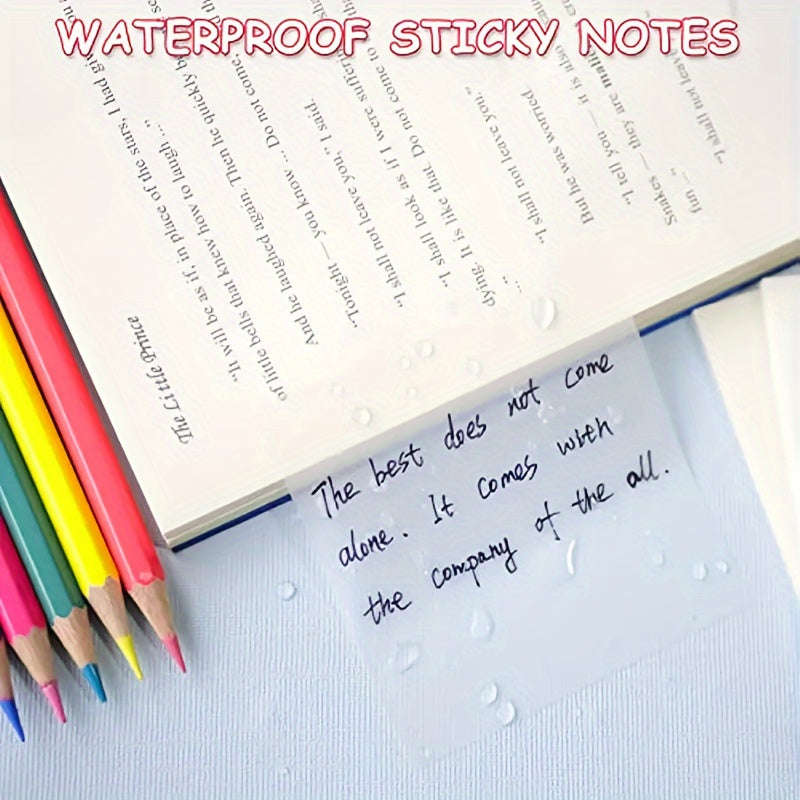 WATERPROOF STICKY NOTES
The Little Prince
"It will be as if, in place of the stars, I had giv
of little bells that knew how to laugh ..."
And he laughed again. Then he quickly be
"Tonight — you know ... Do not come,
"I shall not leave you," I said.
"I shall look as if I were suffering
dying. It is like that. Do not come to th
..."
"I shall not leave you."
But he was worried
"I tell you — it is also
Snakes — they are mali
fun ..."
"I shall not leav
The best does not come
alone. It comes with
the company of the all.